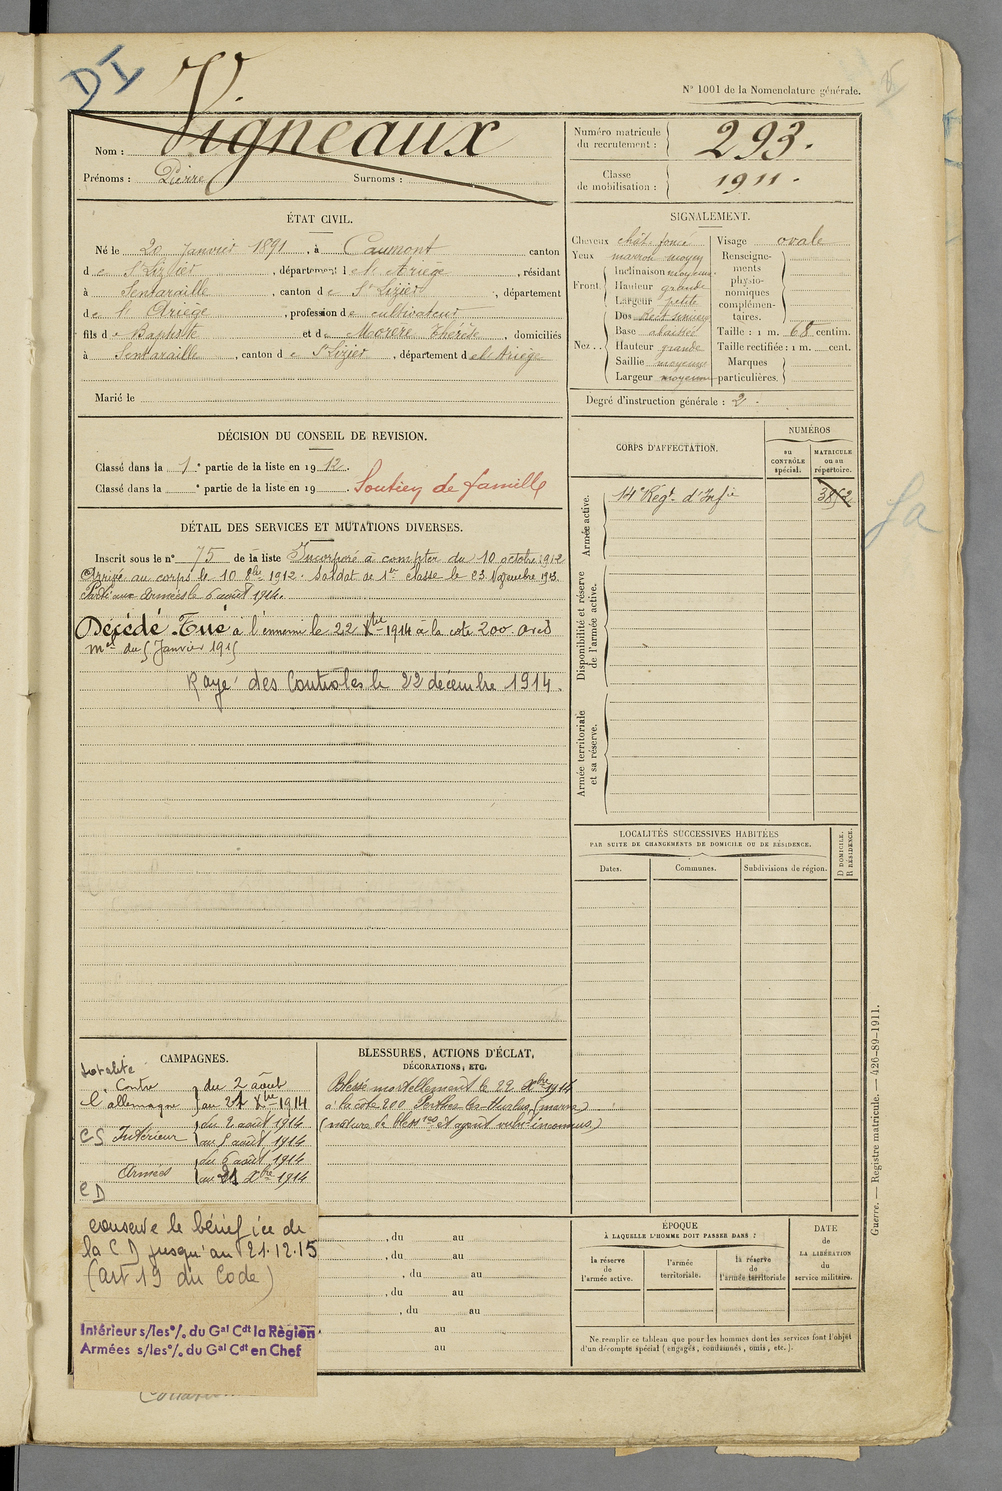 DI
N° 1001 de la Nomenclature générale.
Nom : Vigneaux
Prénoms : Pierre Surnoms :
Numéro matricule du recrutement : 293.
Classe de mobilisation : 1911.
ÉTAT CIVIL.
Né le 20 Janvier 1891, à Caumont canton
de St Lizier, département de l'Ariège, résidant
à Sentaraille, canton de St Lizier, département
de l'Ariège, profession de cultivateur
fils de Baptiste et de Morère Thérèse, domiciliés
à Sentaraille, canton de St Lizier, département de l'Ariège
Marié le
SIGNALEMENT.
Cheveux chât. foncé
Yeux marron moyen
Front. Inclinaison moyenne
Hauteur grande
Largeur petite
Nez.. Dos
Base abaissée
Hauteur grande
Saillie moyenne
Largeur moyenne
Visage ovale
Renseignements physionomiques complémentaires.
Taille : 1 m. 68 centim.
Taille rectifiée : 1 m. cent.
Marques particulières.
Degré d'instruction générale : 2.
DÉCISION DU CONSEIL DE REVISION.
Classé dans la 1e partie de la liste en 1912.
Classé dans la e partie de la liste en 19 . Soutien de famille
DÉTAIL DES SERVICES ET MUTATIONS DIVERSES.
Inscrit sous le n° 75 de la liste Incorporé à compter du 10 octobre 1912
Arrivé au corps le 10 8bre 1912. Soldat de 1re classe le 23 Novembre 1913.
Parti aux armées le 6 août 1914.
Décédé. Tué à l'ennemi le 22 Xbre 1914 à la cote 200. avis
mel du 5 Janvier 1915
Rayé des Controles le 22 décembre 1914.
CORPS D'AFFECTATION.
NUMÉROS
au CONTRÔLE spécial.
MATRICULE ou au répertoire.
Armée active.
14e Régt d'Infie 3852
Disponibilité et réserve de l'armée active.
Armée territoriale et sa réserve.
fa
LOCALITÉS SUCCESSIVES HABITÉES
PAR SUITE DE CHANGEMENTS DE DOMICILE OU DE RÉSIDENCE.
Dates. Communes. Subdivisions de région. D DOMICILE. R RÉSIDENCE.
CAMPAGNES.
totalité
Contre l'allemagne du 2 août au 21 Xbre 1914
CS Intérieur du 2 août 1914 au 5 août 1914
CD Armées du 6 août 1914 au 21 Xbre 1914
conserve le bénéfice de
la CD jusqu'au 21.12.15
(art 19 du Code)
Intérieur s/les °/. du Gal Cdt la Région
Armées s/les °/. du Gal Cdt en Chef
BLESSURES, ACTIONS D'ÉCLAT,
DÉCORATIONS, ETC.
Blessé mortellement le 22 Xbre 1914
à la côte 200 Perthes-les-Hurlus (marne)
(nature de bless res et agent vulnt inconnus)
, du au
, du au
, du au
, du au
, du au
au
au
ÉPOQUE
À LAQUELLE L'HOMME DOIT PASSER DANS :
la réserve de l'armée active.
l'armée territoriale.
la réserve de l'armée territoriale
DATE de LA LIBÉRATION du service militaire.
Ne remplir ce tableau que pour les hommes dont les services font l'objet
d'un décompte spécial (engagés, condamnés, omis, etc.).
Guerre. — Registre matricule. — 426-89-1911.